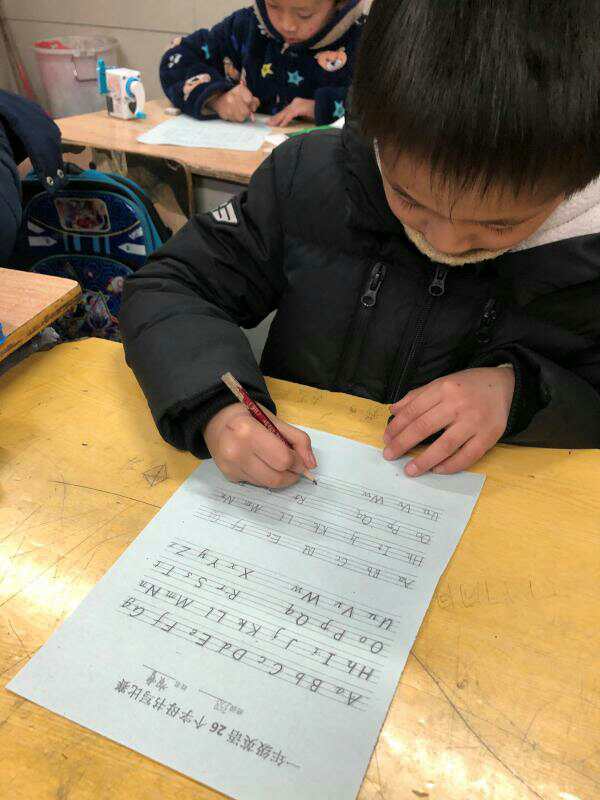 一年级英语 26 个字母书写比赛
Aa Bb Cc Dd Ee Ff Gg
Hh Ii Jj Kk Ll Mm Nn
Oo Pp Qq Rr Ss Tt
Uu Vv Ww Xx Yy Zz
Aa Bb Cc Dd Ee Ff Gg
Hh Ii Kk Ll Mm Nn
Oo Pp Qq Rr
Uu Vv Ww